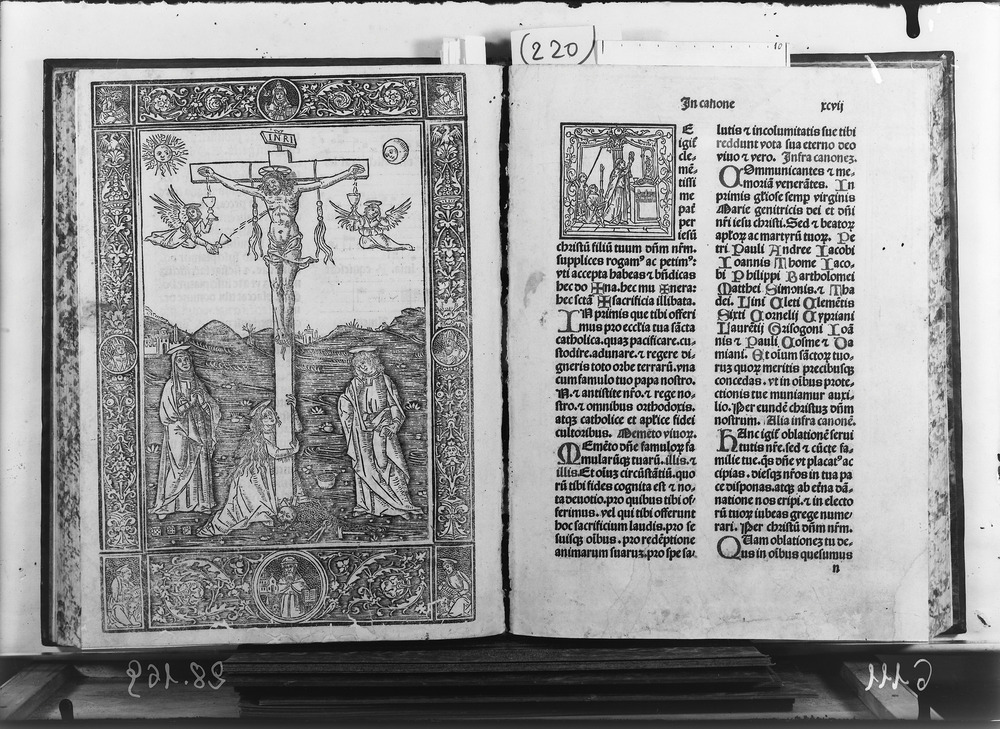 (220)
10
INRI
In canone
xcvij
E
igit᷑
cle-
mẽ-
tissi
me
pat᷑
per
iesũ
christũ filiũ tuum dñm nr̃m.
supplices rogamꝰ ac petimꝰ:
vti accepta habeas ⁊ bñdicas
hec do ✠na. hec mu ✠nera:
hec sctã ✠ sacrificia illibata.
IN primis que tibi offeri
mus pro ecclia tua sãcta
catholica. quaȝ pacificare. cu-
stodire. adunare. ⁊ regere di
gneris toto orbe terrarũ. vna
cum famulo tuo papa nostro.
N. ⁊ antistite nr̃o. ⁊ rege no-
stro. ⁊ omnibus orthodoxis.
atqȝ catholice et aplice fidei
cultoribus. Memẽto viuoꝝ.
MEmẽto dñe famuloꝝ fa
mularũqȝ tuarũ. illis. ⁊
illis. Et oĩuȝ circũstãtiũ. quo
rũ tibi fides cognita est ⁊ no-
ta deuotio. pro quibus tibi of-
ferimus. vel qui tibi offerunt
hoc sacrificium laudis. pro se
suisqȝ oĩbus. pro redẽptione
animarum suaruȝ. pro spe sa-
lutis ⁊ incolumitatis sue tibi
reddunt vota sua eterno deo
viuo ⁊ vero. Infra canoneȝ.
COmmunicantes ⁊ me-
moriã venerãtes. In
primis gl̃iose semꝑ virginis
Marie genitricis dei et dñi
nr̃i iesu christi. Sed ⁊ beatoꝝ
apl̃oꝝ ac martyrũ tuoꝝ. Pe
tri Pauli Andree Iacobi
Ioannis Thome Iaco-
bi Philippi Bartholomei
Matthei Simonis. ⁊ Tha
dei. Lini Cleti Clemẽtis
Sixti Cornelij Cypriani
Laurẽtij Grisogoni Ioã
nis ⁊ Pauli Cosme ⁊ Da
miani. Et oĩum sãctoꝝ tuo-
ruȝ quoꝝ meritis precibusqȝ
concedas. vt in oĩbus prote-
ctionis tue muniamur auxi-
lio. Per eundẽ christuȝ dñm
nostrum. Alia infra canonẽ.
HAnc igit᷑ oblationẽ serui
tutis nr̃e. sed ⁊ cũcte fa-
milie tue. q̃s dñe vt placatꝰ ac
cipias. diesqȝ nr̃os in tua pa
ce disponas. atqȝ ab et̃na dã-
natione nos eripi. ⁊ in electo
rũ tuoꝝ iubeas grege nume
rari. Per christũ dñm nr̃m.
QUam oblationeȝ tu de-
us in oĩbus quesumus
n
28.169
C 111